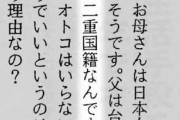 お母さんは日本
そうです。父は台
二重国籍なんで
オトコはいらな
でいいというの
理由なの?